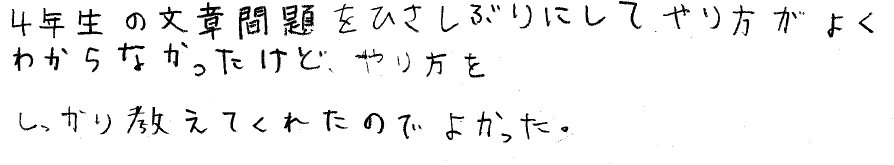 4年生の文章問題をひさしぶりにしてやり方がよく
わからなかったけど、やり方を
しっかり教えてくれたのでよかった。